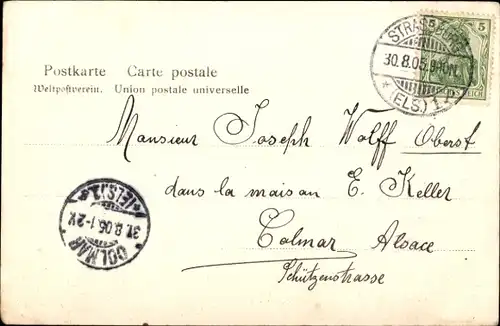 Postkarte Carte postale
Weltpostverein. Union postale universelle
5 5
STRASSBURG
30.8.05.
*(ELS.) 1
REICH
Monsieur Joseph Wolff Oberst
dans la maison E. Keller
Colmar Alsace
Schützenstrasse
COLMAR
31.8.05.1-2V.
*(ELS.)1*